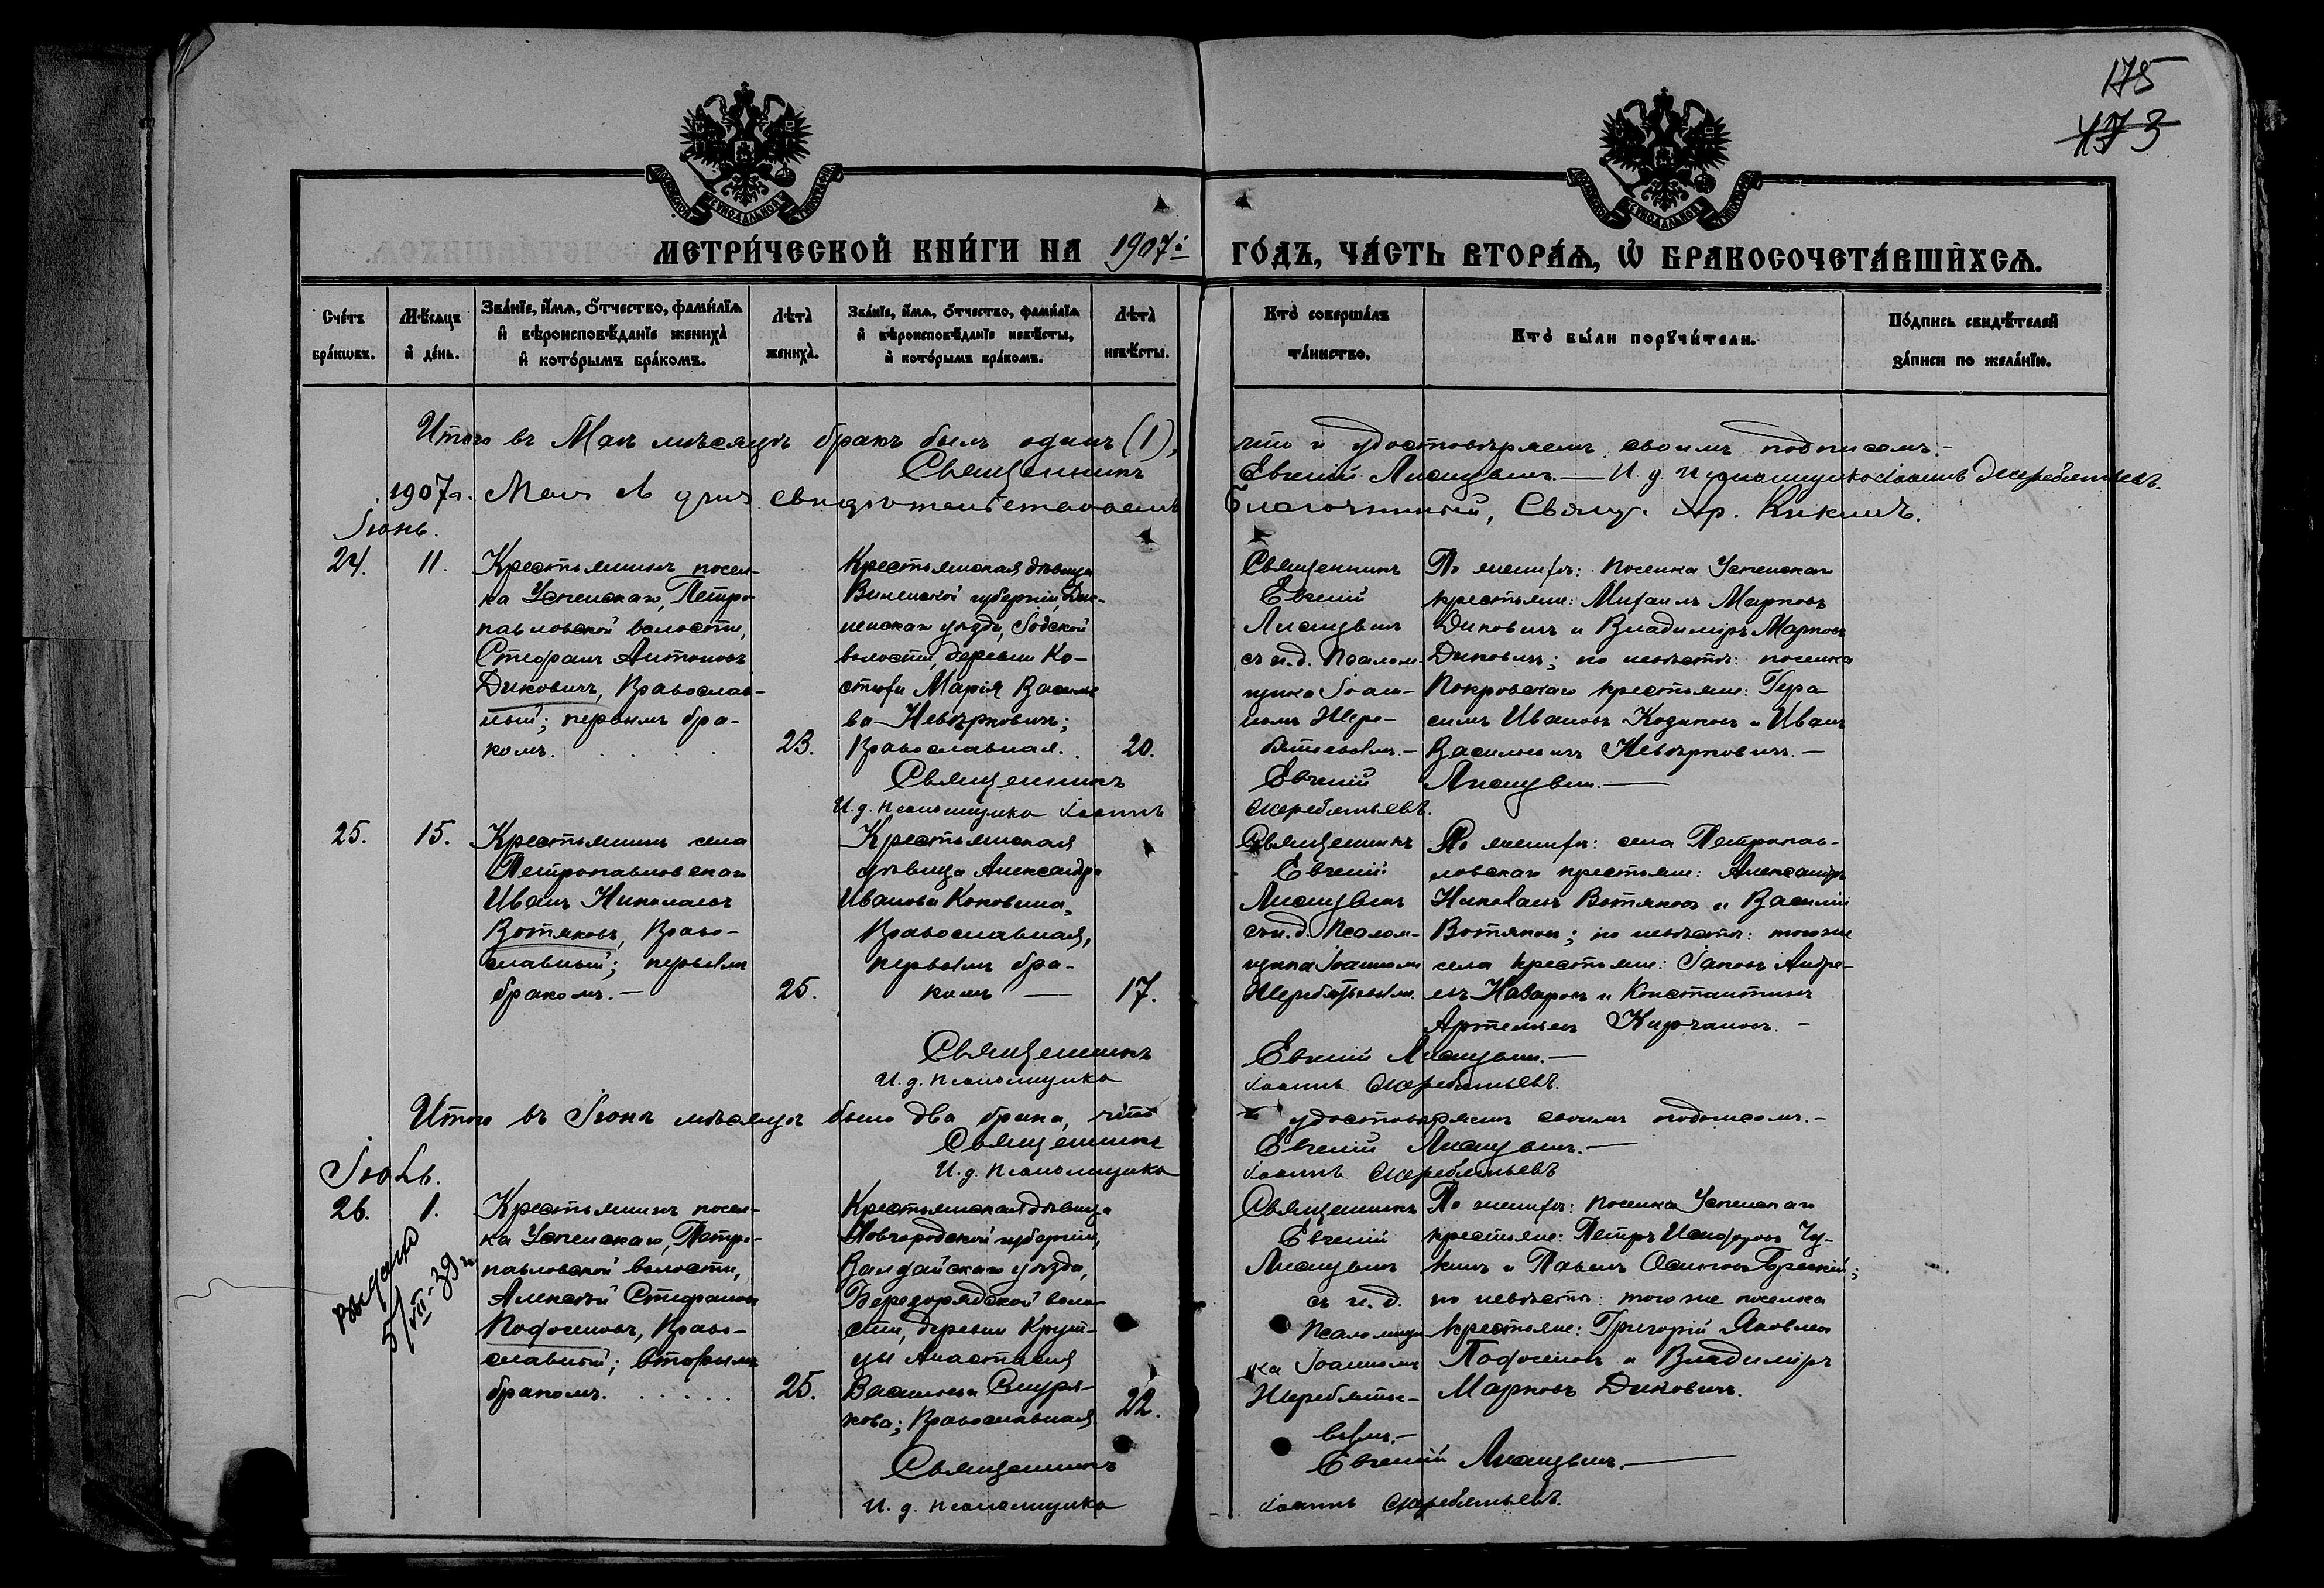 175
173
МЕТРИ́ЧЕСКОЙ КНИ́ГИ НА 1907й ГО́ДЪ, ЧА́СТЬ ВТОРА́Ѧ, Ѡ БРАКОСОЧЕТА́ВШИХСѦ.
Сче́тъ бра́кѡвъ.
Мѣ́сѧцъ и де́нь.
Зва́нїе, и́мѧ, ѻ́тчество, фами́лїѧ и вѣроисповѣ́данїе жениха̀ и кото́рымъ бра́комъ.
Лѣта̀ жениха̀.
Зва́нїе, и́мѧ, ѻ́тчество, фами́лїѧ и вѣроисповѣ́данїе невѣ́сты, и кото́рымъ бра́комъ.
Лѣта̀ невѣ́сты.
Кто̀ соверша́лъ та́инство.
Кто̀ бы́ли порꙋчи́тели.
По́дпись свидѣ́телей за́писи по жела́нїю.
Итого въ Маѣ мѣсяцѣ бракъ былъ одинъ (1), что и удостовѣряемъ своимъ подписомъ.-
Священникъ Евгеній Лисицынъ.— И. д. Псаломщика Іоаннъ Жеребятьевъ.
1907 г. дня свидѣтельствовалъ Благочинный, Свящ.
Іюнь.
24.
11.
Крестьянинъ посел-
ка Успенскаго, Петро-
павловской волости,
Стефанъ Антоновъ
Диковичъ, Православ-
ный; первымъ бра-
комъ.
23.
Крестьянская дѣвица
Виленской губерніи, Дис-
ненскаго уѣзда,
волости, деревни Ко-
Марія Василье
ва Невѣрковичъ;
Православная.
20.
Священникъ
Евгеній
Лисицынъ
съ и.д. Псалом-
щика Іоан-
номъ Жере-
бятьевымъ.-
По женихѣ: поселка Успенскаго
крестьяне: Михаилъ Марковъ
Диковичъ и Владиміръ Марковъ
Диковичъ; по невѣстѣ: поселка
Покровскаго крестьяне: Гера
симъ Ивановъ и Иванъ
Васильевичъ Невѣрковичъ.-
Священникъ Евгеній Лисицынъ.—
И.д. Псаломщика Іоаннъ Жеребятьевъ.
25.
15.
Крестьянинъ села
Петропавловскаго
Иванъ Николаевъ
Вотяковъ, Право-
славный; первымъ
бракомъ.-
25.
Крестьянская
дѣвица Александра
Иванова Коковина,
Православная,
первымъ бра-
комъ —
17.
Священникъ
Евгеній
Лисицынъ
съ и.д. Псалом-
щика Іоанномъ
Жеребятьевымъ.
По женихѣ: села Петропав-
ловскаго крестьяне: Александръ
Николаевъ Вотяковъ и Василій
Вотяковъ; по невѣстѣ: того же
села крестьяне: Іаковъ Андре-
евъ и Константинъ
Артемьевъ
Священникъ Евгеній Лисицынъ.—
И.д. Псаломщика Іоаннъ Жеребятьевъ.
Итого въ Іюнѣ мѣсяцѣ было два брака, что и удостовѣряемъ своимъ подписомъ.-
Священникъ Евгеній Лисицынъ.—
И.д. Псаломщика Іоаннъ Жеребятьевъ
Іюль.
26.
1.
Выдано
5/VII-39 г
Крестьянинъ посел-
ка Успенскаго, Петро-
павловской волости,
Алексѣй Стефановъ
Право-
славный; вторымъ
бракомъ.
25.
Крестьянская дѣвица
Новгородской губерніи,
Валдайскаго уѣзда,
воло
сти, деревни
Анастасія
Васильева
Православная
22.
Священникъ
Евгеній
Лисицынъ
съ и.д.
Псаломщи
ка Іоанномъ
Жеребятье-
вымъ.-
По женихѣ: поселка Успенскаго
крестьяне: Петръ
и Павелъ Осиповъ
по невѣстѣ: того же поселка
крестьяне: Григорій Яковлевъ
и Владиміръ
Марковъ Диковичъ.
Священникъ Евгеній Лисицынъ.—
И. д. Псаломщика Іоаннъ Жеребятьевъ.